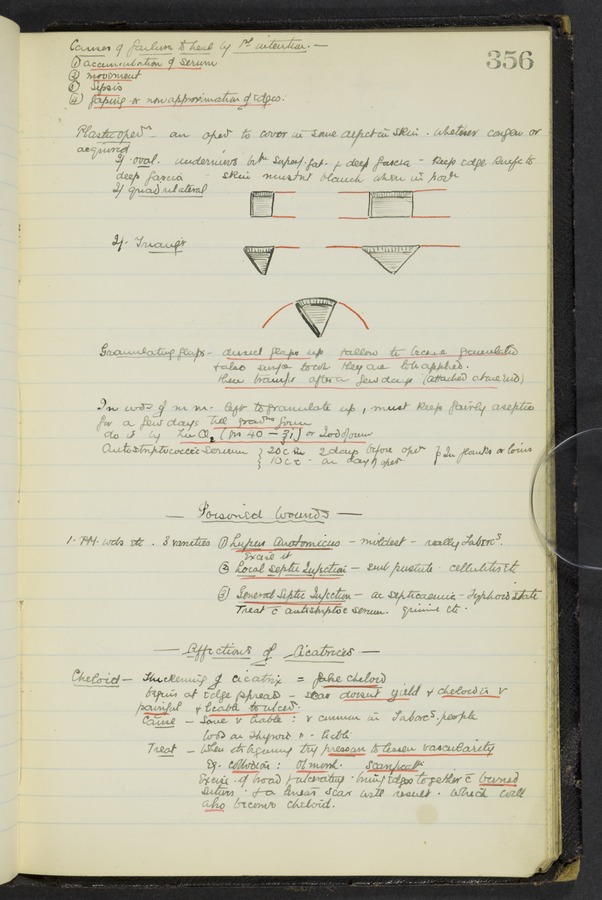 356
Causes of failure to heal by 1st intention. —
① accumulation of serum
② movement
③ Sepsis
④ gaping or non approximation of edges.
Plastic opern - an opern to cover in some defect in skin. whether congen or
acquired
If oval. undermines btn superf. fat. & deep fascia - Keep edge knife to
deep fascia - skin mustn't blanch when in posn
If quadrilateral
If Triangr
Granulating flaps - dissect flaps up & allow to become granulated
& also surface to wh they are to be applied.
then transpl after a few days (attached at one end)
In wds of m.m. left to granulate up, must keep fairly aseptic
for a few days till grans form
do it by ZnCl2 (grs 40 — ℥i) or Iodoform
Antistreptococcic Serum 20 c.c. 2 days before opern
10 c.c. - on day of opern
In flanks or loins
— Poisoned Wounds —
1. P.M. wds etc. 3 varieties ① Lupus Anatomicus - mildest - really Tuberc.
Excise it
② Local Septic Infection - pustule cellulitis etc
③ General Septic Infection - as septicaemia - Typhoid state
Treat c̄ antistreptoc serum. quinine etc.
— Affections of Cicatrices —
Cheloid — Thickening of cicatrix = false cheloid
begins at edge spreads - scar doesnt yield & cheloid is v
painful & liable to ulcer.
Cause - Some v liable: v common in Tuberc. people
Treat - When str beginning try pressure to lessen vascularity
Eg. collodion: scarificatn
Excise if broad & ulcerating. bring edges together c̄ buried
suture. & a linear scar will result. which will
also become cheloid.